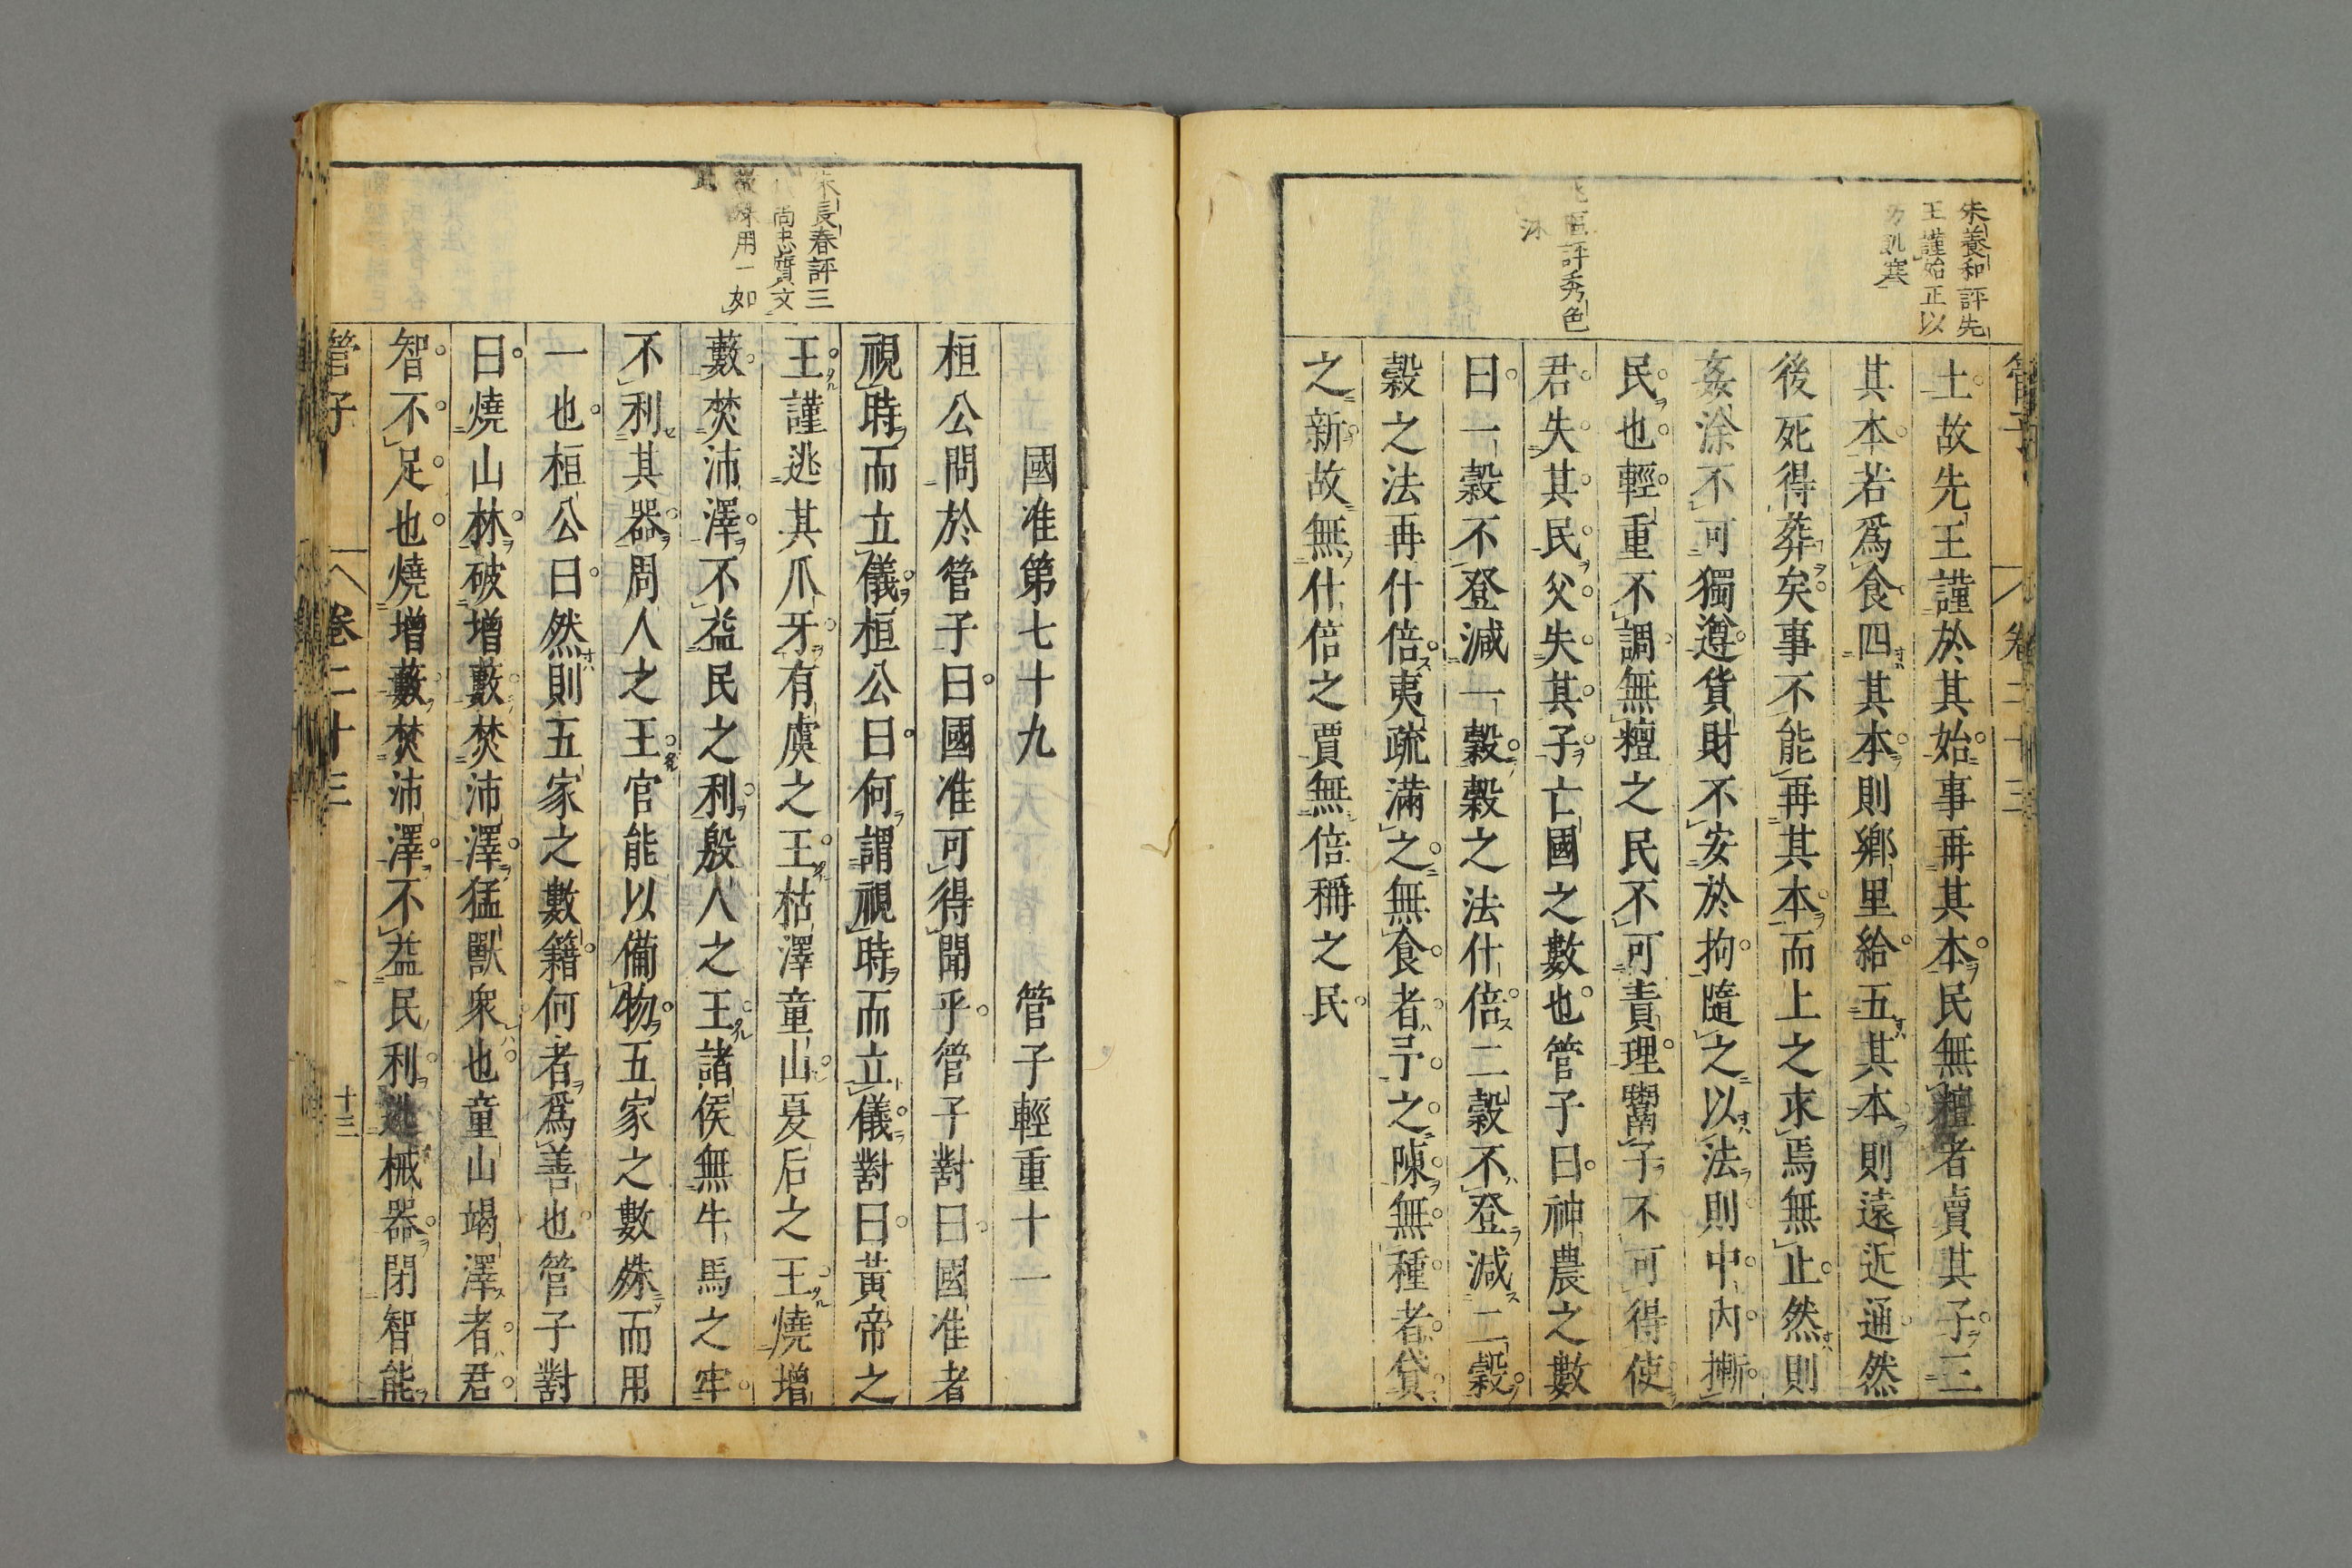 管子
卷二十三
朱養和評先
王謹始正以
土故先王謹於其始事再其本民無𥼷者賣其子三
其本若爲食四其本則鄉里給五其本則遠近通然
後死得葬矣事不能再其本而上之求焉無止然則
姦涂不可獨遵貨財不安於拘隨之以法則中內摲
民也輕重不調無𥼷之民不可責理鬻子不可得使
君失其民父失其子亡國之數也管子曰神農之數
曰一穀不登減一穀穀之法什倍二穀不登減二穀
穀之法再什倍夷疏滿之無食者予之陳無種者貸
之新故無什倍之賈無倍稱之民
評秀色
朱長春評三
尚忠質文
用一如
國准第七十九 管子輕重十一
桓公問於管子曰國准可得聞乎管子對曰國准者
視時而立儀桓公曰何謂視時而立儀對曰黃帝之
王謹逃其爪牙有虞之王枯澤童山夏后之王燒增
藪焚沛澤不益民之利殷人之王諸侯無牛馬之牢
不利其器周人之王官能以備物五家之數殊而用
一也桓公曰然則五家之數籍何者爲善也管子對
曰燒山林破增藪焚沛澤猛獸衆也童山竭澤者君
智不足也燒增藪焚沛澤不益民利逃械器閉智能
管子
卷二十三
十三